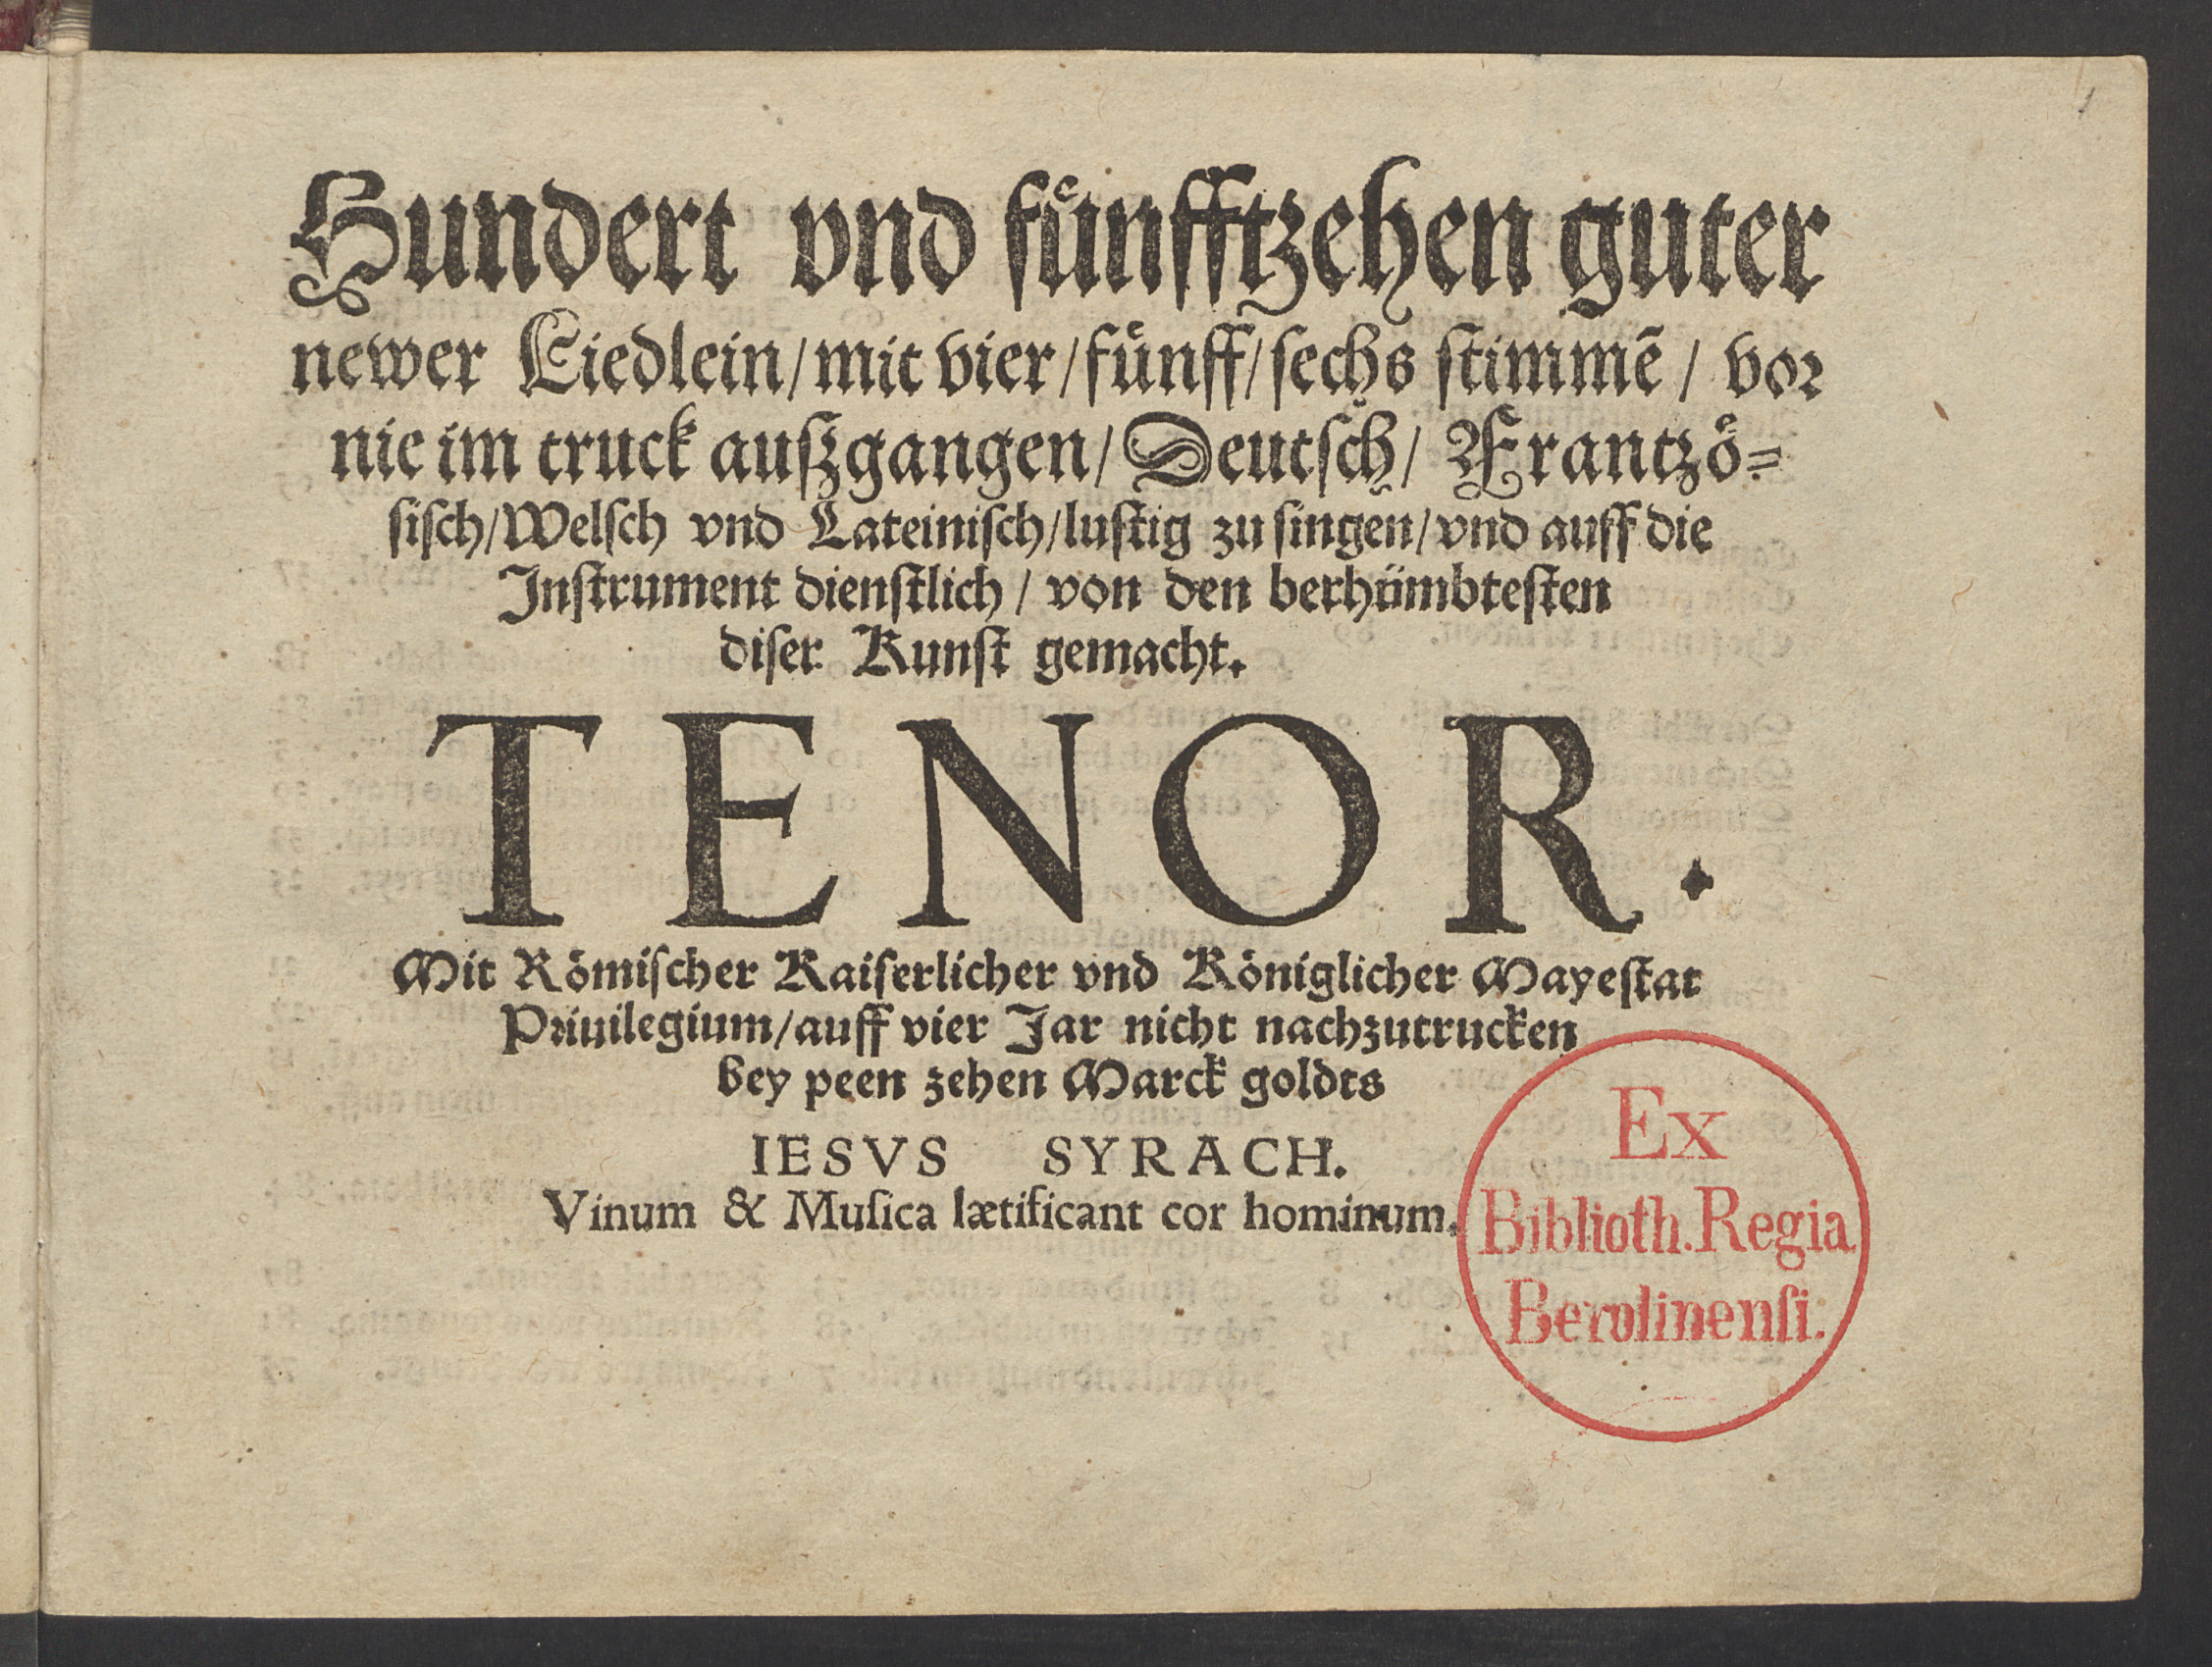 1
Hundert vnd fuͤnfftzehen guter
newer Liedlein/mit vier/fuͤnff/sechs stimmẽ/ vor
nie im truck außgangen/Deutsch/ Frantzoͤ=
sisch/Welsch vnd Lateinisch/lustig zu singen/vnd auff die
Instrument dienstlich/ von den berhümbtesten
diser Kunst gemacht.
TENOR.
Mit Römischer Kaiserlicher vnd Königlicher Mayestat
Priuilegium/auff vier Jar nicht nachzutrucken
bey peen zehen Marck goldts
IESVS SYRACH.
Vinum & Muſica lætificant cor hominum.
Ex
Biblioth. Regia
Berolinenſi.